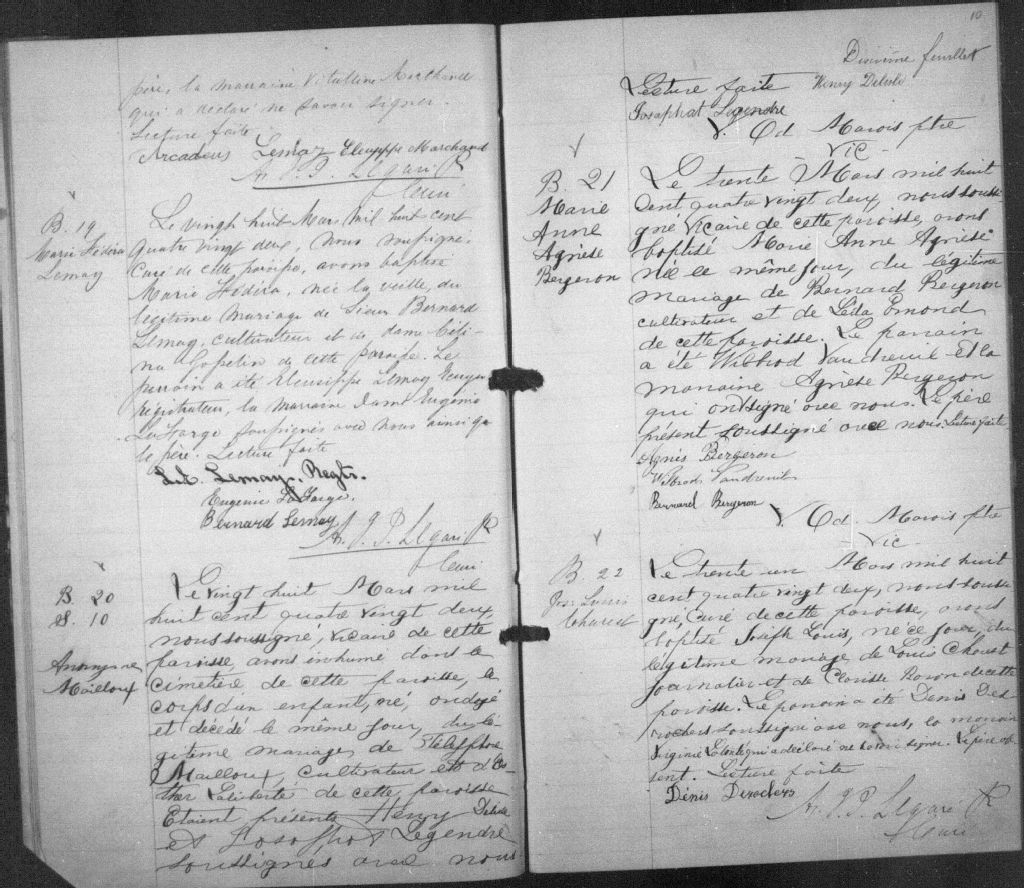 père, la marraine Vitalline Marchand
qui a déclaré ne savoir signer.
Lecture faite.
Arcadeus Lemay Eleusippe Marchand
A. J. P. Legaré Ptr
Curé
B. 19
Marie Hédira
Lemay
Le vingt huit Mars Mil huit cent
quatre vingt deux, nous soussigné,
Curé de cette paroisse, avons baptisé
Marie Hédira, née la veille, du
légitime mariage de Sieur Bernard
Lemay, cultivateur et de dame Céli-
na Gosselin de cette paroisse. Le
parrain a été Eleusippe Lemay Ecuyer
régistrateur, la marraine Dame Eugénie
LaFarge soussignés avec nous ainsi que
le père. Lecture faite
Lemay. Regtr.
Eugenie LaFarge.
Bernard Lemay
A. J. P. Legaré Ptr
Curé
B 20
S. 10
Anonyme
Mailloux
Le vingt huit Mars mil
huit cent quatre vingt deux,
nous soussigné, vicaire de cette
paroisse, avons inhumé dans le
cimetière de cette paroisse, le
corps d'un enfant, né, ondoyé
et décédé le même jour, du lé-
gitime mariage de Télesphore
Mailloux, cultivateur et d'Es-
ther Laliberté de cette paroisse
Etaient présents Henry Delisle
et Josaphat Legendre
soussignés avec nous.
10
Dixième feuillet
Lecture faite Henry Delisle
Josaphat Legendre
V. Od Marois ptre
Vic -
B. 21
Marie
Anne
Agnèse
Bergeron
Le trente Mars mil huit
cent quatre vingt deux, nous sous-
gné vicaire de cette paroisse, avons
baptisé Marie Anne Agnèse
née ce même jour, du légitime
mariage de Bernard Bergeron
cultivateur et de Léda Emond
de cette paroisse. Le parrain
a été Wilbrod Vaudreuil et la
marraine Agnèse Bergeron
qui ont signé avec nous. Le père
présent soussigné avec nous. Lecture faite
Agnès Bergeron
Wilbrod Vaudreuil
Bernard Bergeron
V. Od. Marois ptre
Vic -
B 22
Jos. Louis
Charest
Le trente un Mars mil huit
cent quatre vingt deux, nous sous-
gné, Curé de cette paroisse, avons
baptisé Joseph Louis, né ce jour, du
légitime mariage de Louis Charest
journalier et de Clarisse de cette
paroisse. Le parrain a été Denis Des-
rochers soussigné avec nous, la marraine
Virginie qui a déclaré ne savoir signer. Le père ab-
sent. Lecture faite
Dénis Derochers
A. J. P. Legaré Ptr
Curé